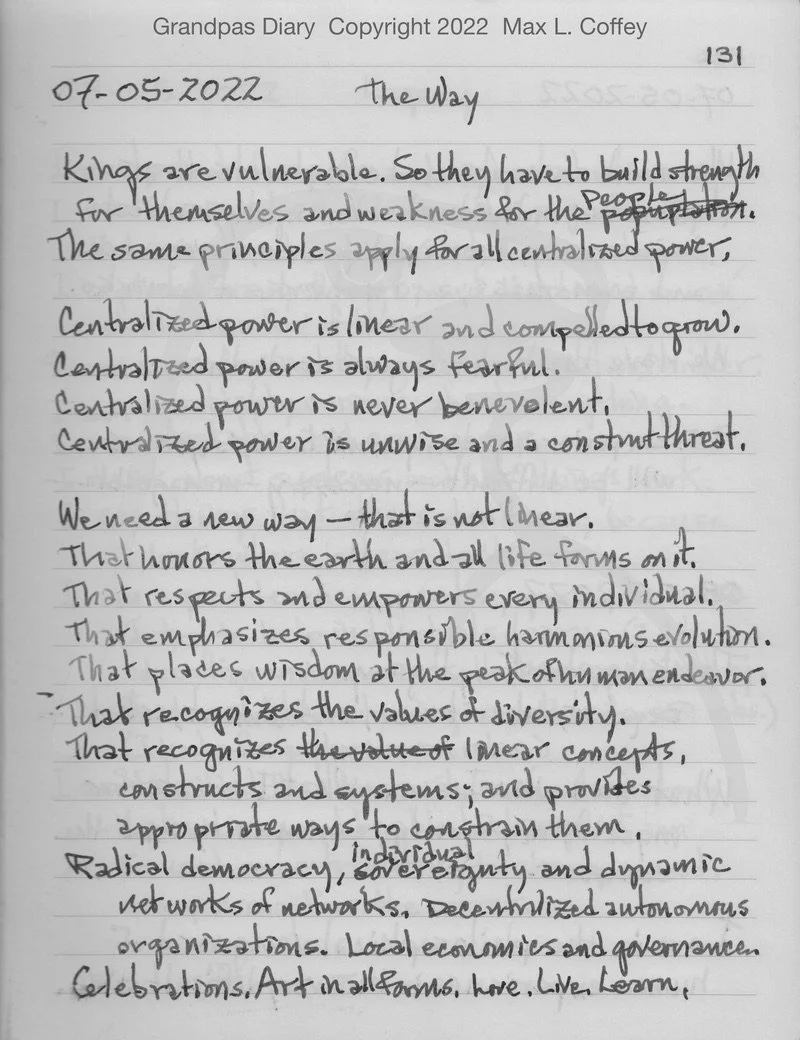 Grandpas Diary Copyright 2022 Max L. Coffey
131
07-05-2022 The Way
Kings are vulnerable. So they have to build strength
for themselves and weakness for the people population.
The same principles apply for all centralized power.
Centralized power is linear and compelled to grow.
Centralized power is always fearful.
Centralized power is never benevolent.
Centralized power is unwise and a constant threat.
We need a new way — that is not linear.
That honors the earth and all life forms on it.
That respects and empowers every individual.
That emphasizes responsible harmonious evolution.
That places wisdom at the peak of human endeavor.
That recognizes the values of diversity.
That recognizes the value of linear concepts,
constructs and systems; and provides
appropriate ways to constrain them.
Radical democracy, individual sovereignty and dynamic
networks of networks. Decentralized autonomous
organizations. Local economies and governance.
Celebrations. Art in all forms. Love. Live. Learn.